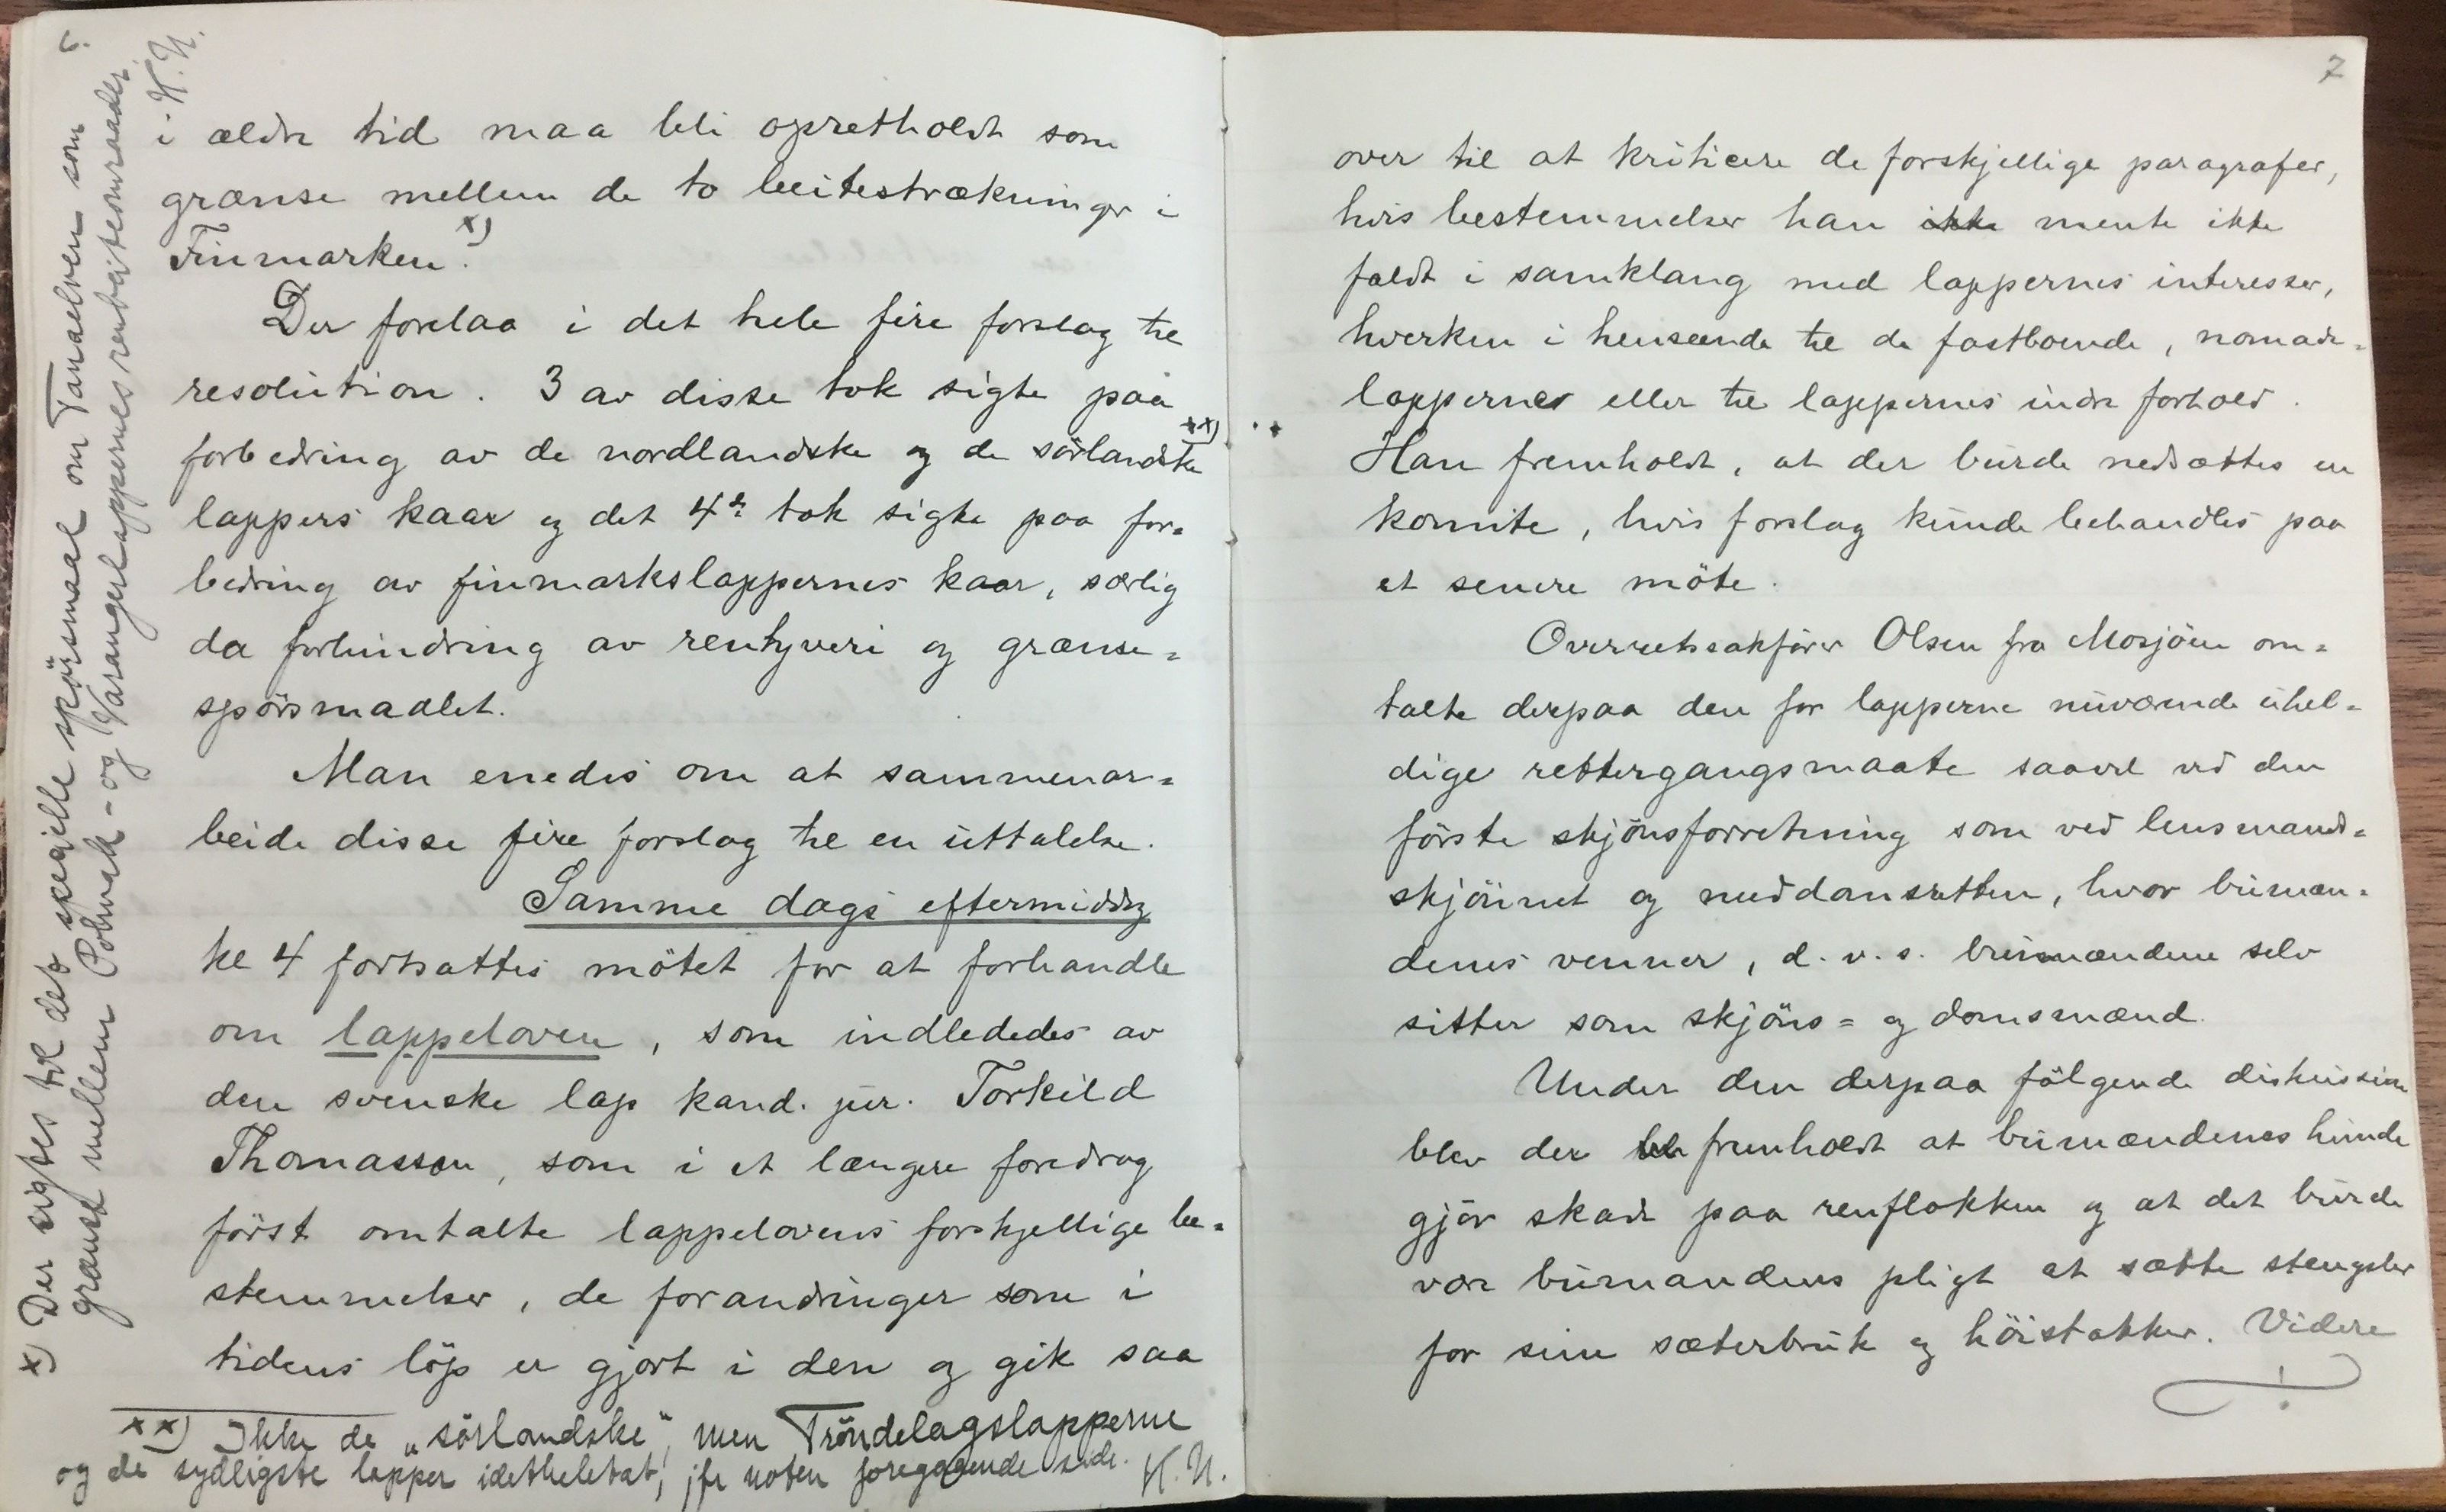 6.
i ældre tid maa bli opretholdt som
grænse mellem de to beitestrækninger i
Finmarken. x)
Der forelaa i det hele fire forslag til
resolution. 3 av disse tok sigte paa
forbedring av de nordlandske og de sörlandske xx)
lappers kaar og det 4de tok sigte paa for=
bedring av finmarkslappernes kaar, særlig
da forhindring av rentyveri og grænse=
spörsmaalet.
Man enedes om at sammenar=
beide disse fire forslag til en uttalelse.
Samme dags eftermiddag
kl 4 fortsattes mötet for at forhandle
om lappeloven, som indlededes av
den svenske lap kand. jur. Torkild
Thomasson, som i et længere foredrag
först omtalte lappelovens forskjellige be=
stemmelser, de forandringer som i
tidens löp er gjort i den og gik saa
xx) Ikke de „sörlandske", men Tröndelagslapperne
og de sydligste lapper idetheletat, jfr noten foregaaende side. K.N.
x) Der sigtes til det specielle spörsmaal om Tanaelven som
grænse mellem Polmak- og Varangerlappernes renbeiteomraader.
K.N.
7
over til at kriticere de forskjellige paragrafer,
hvis bestemmelser han ikke mente ikke
faldt i samklang med lappernes interesser,
hverken i henseende til de fastboende, nomade=
lappernes eller til lappernes indre forhold.
Han fremholdt, at der burde nedsættes en
komite, hvis forslag kunde behandles paa
et senere möte.
Overretssakförer Olsen fra Mosjöen om=
talte derpaa den for lapperne nuværende uhel=
dige rettergangsmaate saavel ved den
förste skjönsforretning som ved lensmands=
skjönnet og meddomsretten, hvor bumæn=
denes venner, d.v.s. bumændene selv
sitter som skjöns= og domsmænd.
Under den derpaa fölgende diskussion
blev der ble fremholdt at bumændenes hunde
gjör skade paa renflokken og at det burde
være bumandens pligt at sætte stengsler
for sine sæterbruk og höistakker. Videre